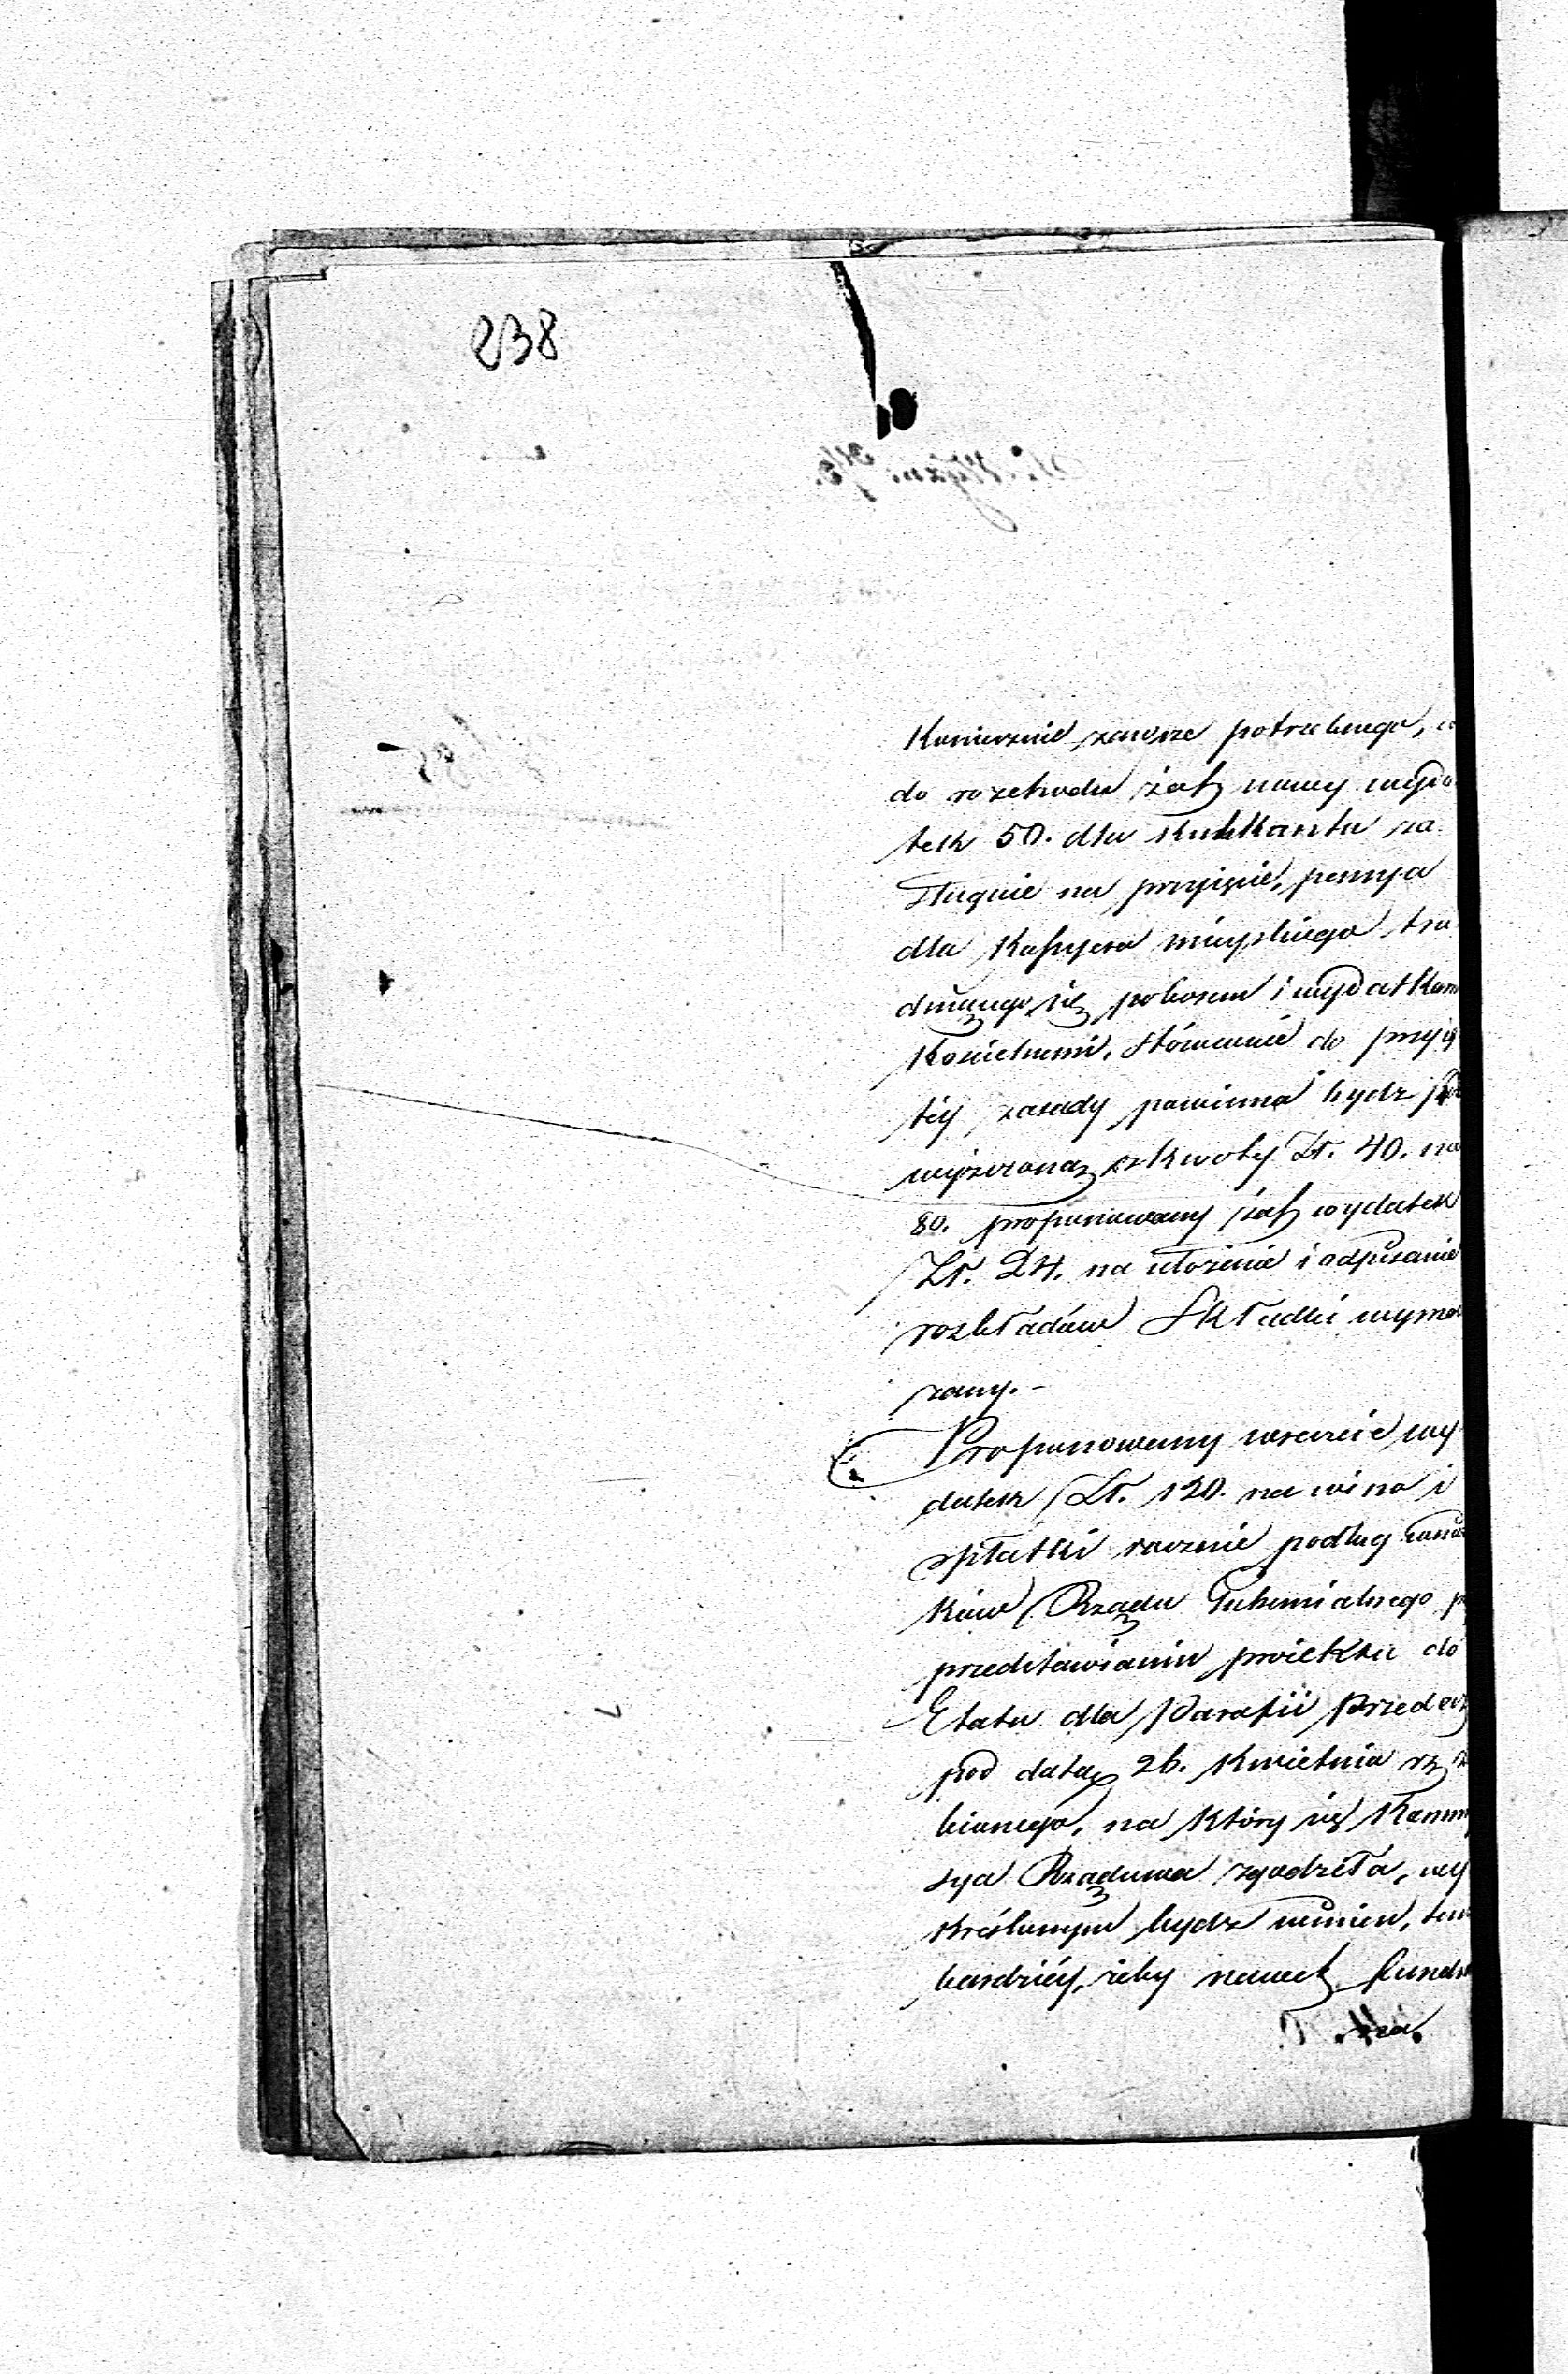 238
Koniecznie zawsze potrzebnego,
do rozchodu zaś nowy wyda
tek 50. dla Kalikanta za
sługuie na przyięcie, pensya
dla Kassyera mieyskiego tru
dniącego się poborem i wydatkam
Kościelnemi, stósownie do przyię
téy zasady powinna bydz
wyższoną z kwoty Zł. 40. na
80. proponowany zaś wydatek
Zł. 24. na ułożenie i odpisanie
rozkładów Składki wyma
zany.-
Proponowany wreszcie wy
datek Zł. 120. na wino i
opłatki rocznie podług
ków Rządu Gubernialnego p
przedstawianiu proiektu do
Etatu dla Parafii Przedecz
pod datą 26. Kwietnia
bionego, na który się Kommi
sya Rządowa zgodziła, wy
kreślonym bydz winien, tem
bardziéy, żeby nawet fundu
sza.